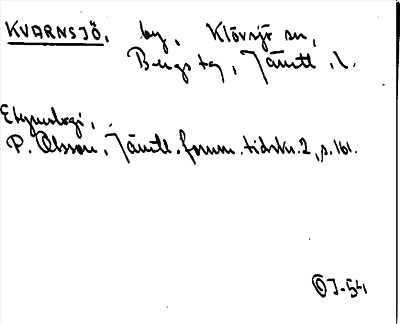 KVARNSJÖ, by, Klövsjö sn,
Bergs tg, Jämtl. l.
Etymologi,
P. Olsson, Jämtl. fornm. tidskr. 2, s. 161.
OJ-54